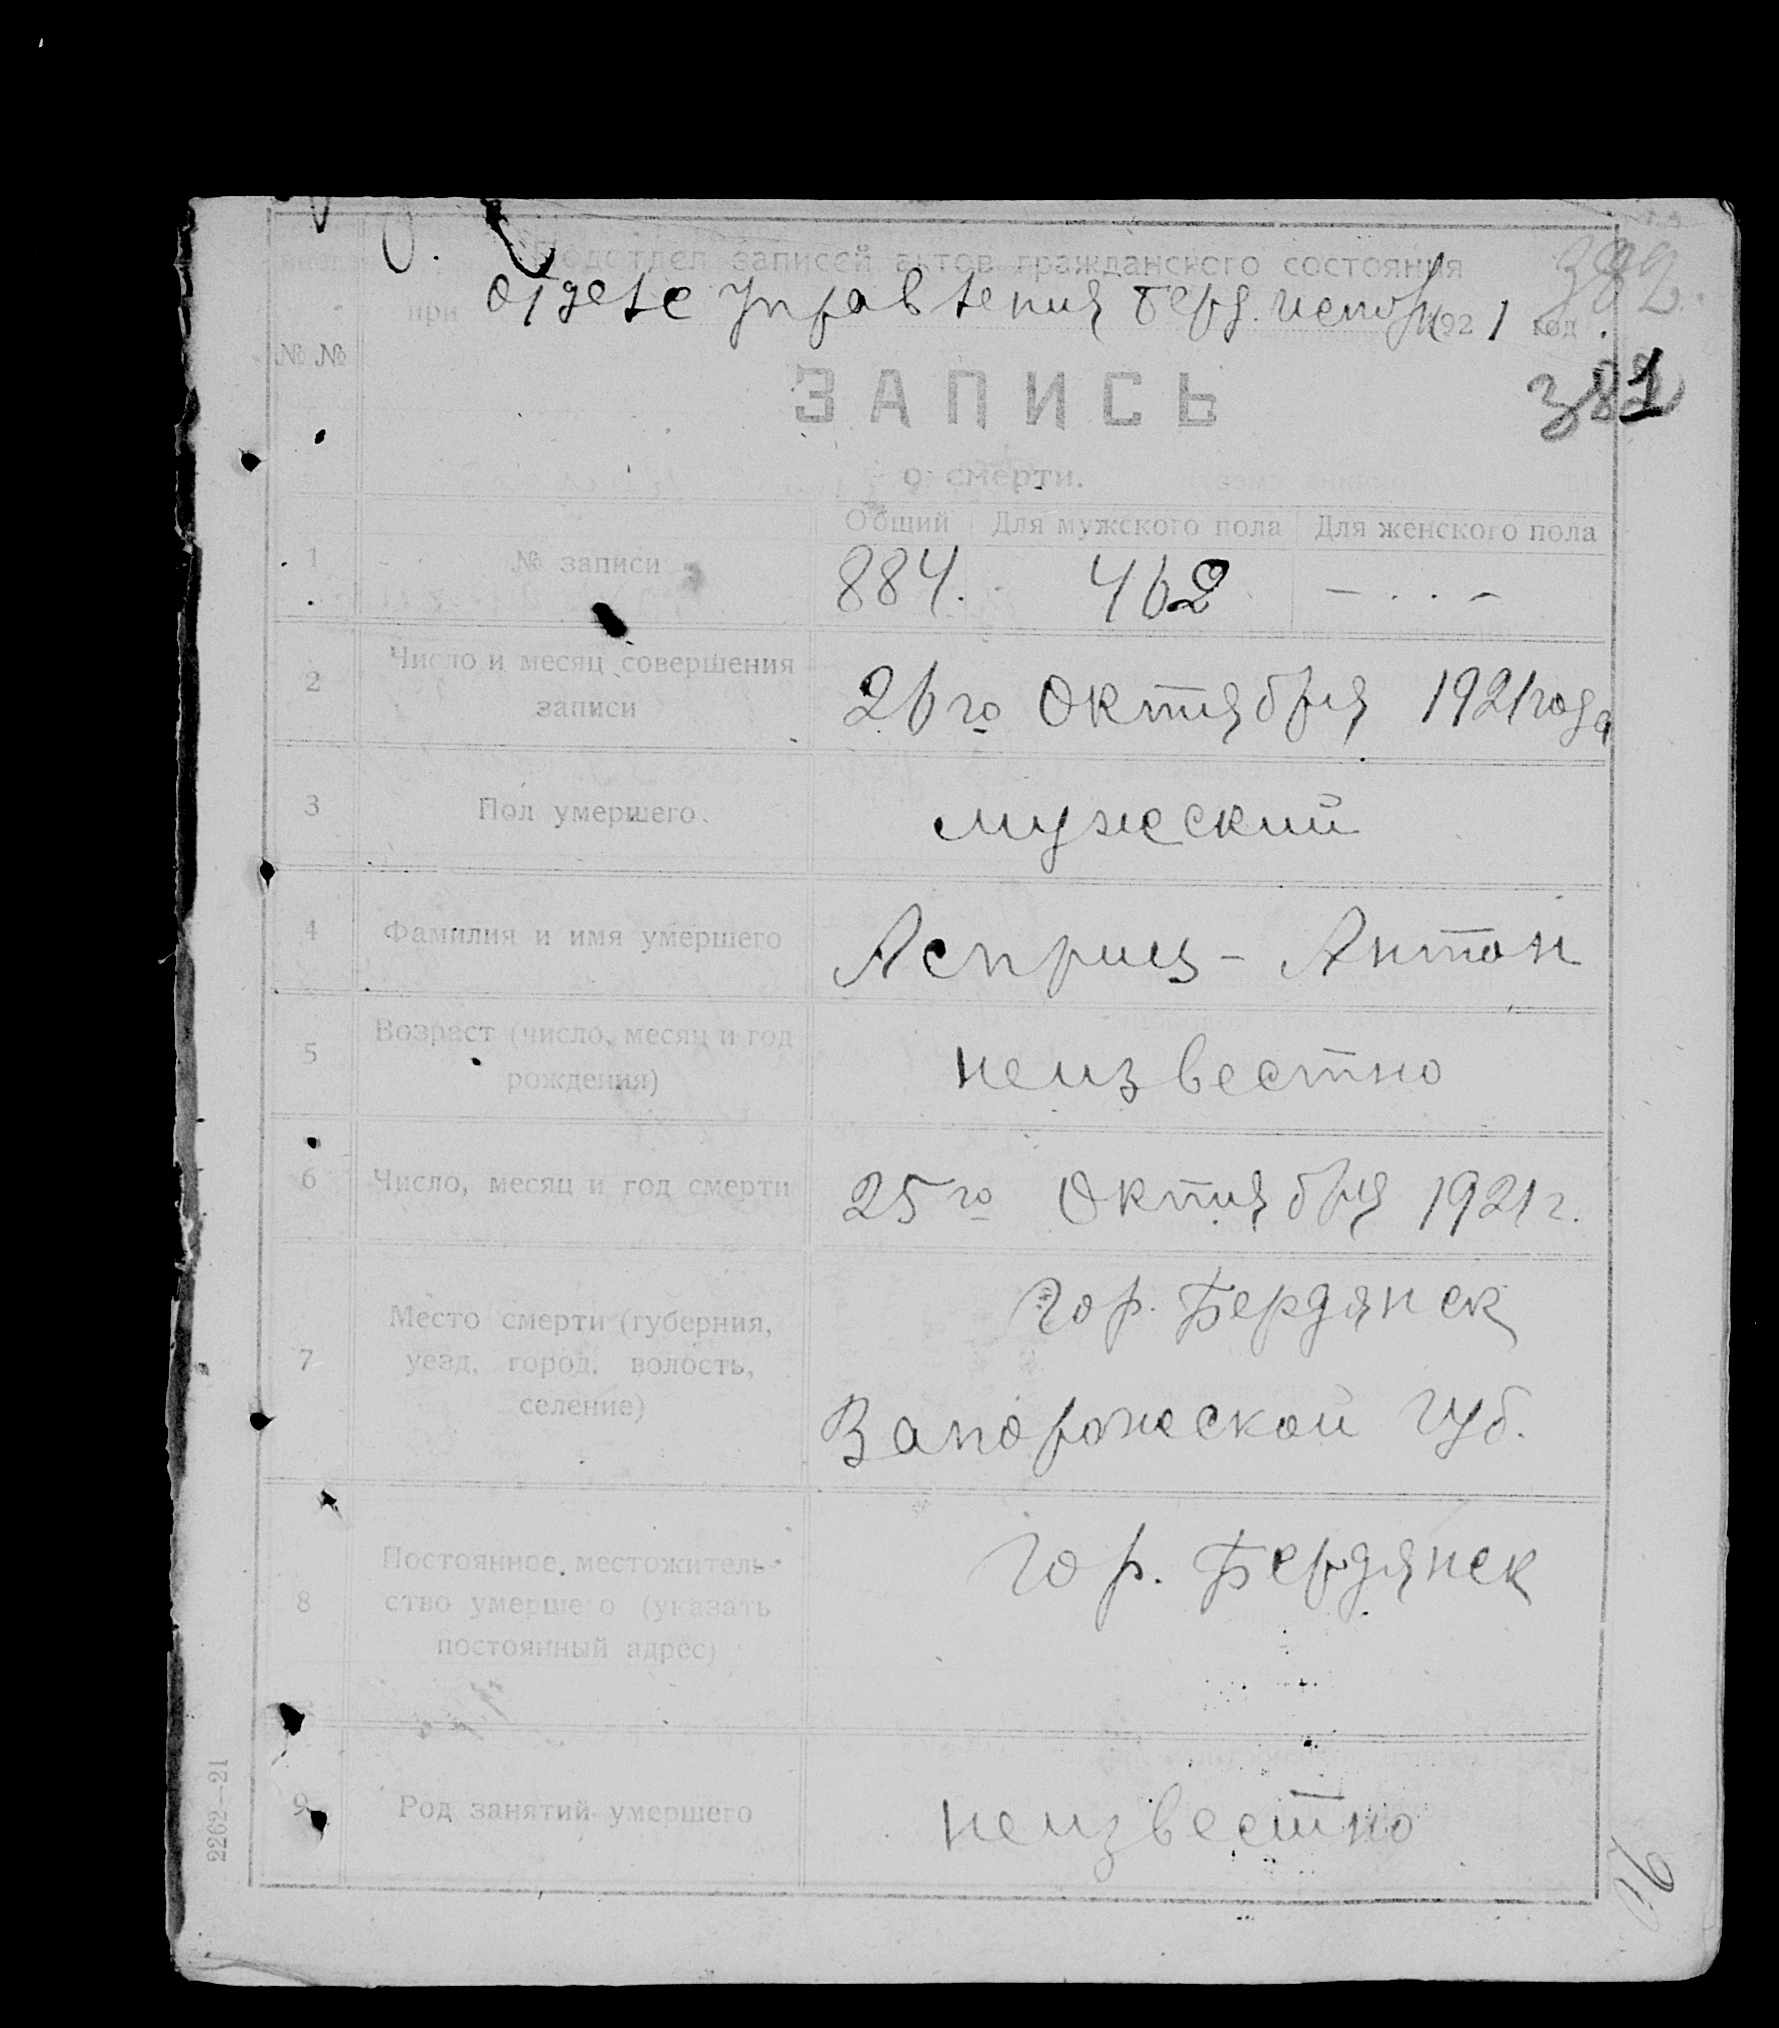 Подотдел записей актов гражданского состояния
382.
при отделе управления берд. испол 1921 год.
№ №
ЗАПИСЬ
381
о смерти.
Общий Для мужского пола Для женского пола
1 № записи 884. 462 — . . —
2 Число и месяц совершения записи 26го Октября 1921 года
3 Пол умершего. мужеский
4 Фамилия и имя умершего Асприц - Антон
5 Возраст (число, месяц и год рождения) неизвестно
6 Число, месяц и год смерти 25го Октября 1921 г.
7 Место смерти (губерния, уезд, город, волость, селение) Гор. Бердянск
Запорожеской губ.
8 Постоянное местожительство умершего (указать постоянный адрес) Гор. Бердянск
9 Род занятий умершего неизвестно
2262—21